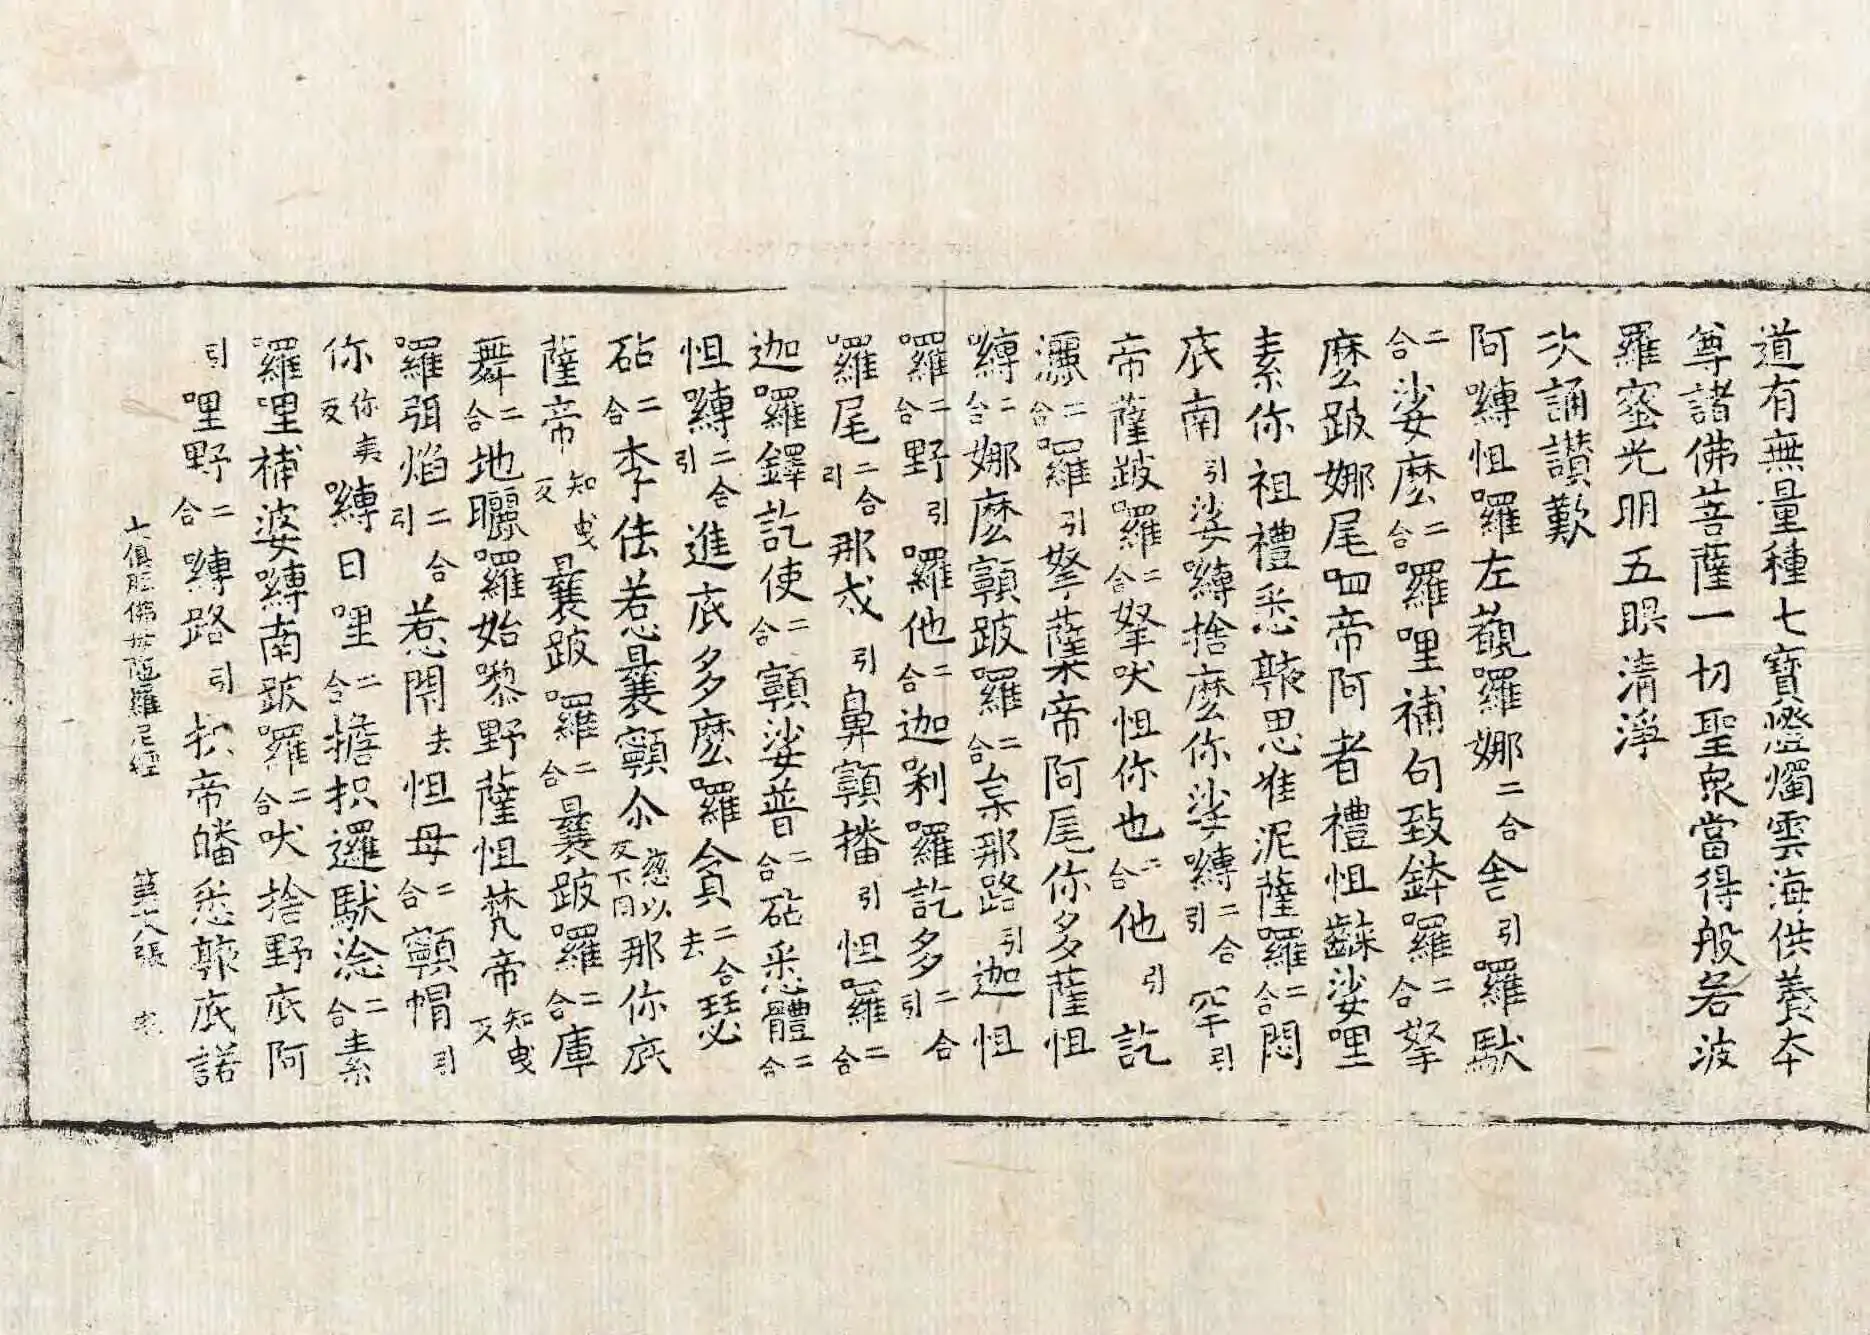 道有無量種七寶燈燭雲海供養本
尊諸佛菩薩一切聖衆當得般若波
羅蜜光明五眼清淨
次誦讃歎
阿嚩怛囉左覩囉娜二合舎引囉馱
二合娑麽二合囉哩補句致鉢囉二合拏
麽跛娜尾呬帝阿者禮怛齼娑哩
素你祖禮悉䫂思准泥薩囉二合悶
底南引娑嚩捨麽你娑嚩二合引罕引
帝薩跛囉二合拏吠怛你也二合他引訖
灑二合囉引拏薩帝阿尾你多薩怛
嚩二合娜麽顐跛囉二合那路引迦怛
囉二合野引囉他二合迦剎囉訖多二合引
囉尾二合引那成引鼻顐播引怛囉二合
迦囉鐸訖使二合顐娑普二合砧悉體二合
怛嚩二合引進底多麽囉貪二合去瑟
砧二合李佉惹曩顐尒慈以反下同那你底
薩帝知曵反曩跛囉二合曩跛囉二合庫
舞二合地曬囉始嚟野薩怛梵帝知曵反
囉弭焰二合引惹閇去怛母二合顐帽引
你你夷反嚩日哩二合擔抧邏馱淰二合素
囉哩補婆嚩南跛囉二合吠捨野底阿
引哩野二合嚩路引抧帝皤悉䫂底諾
七俱胝佛母陁羅尼經 第八張